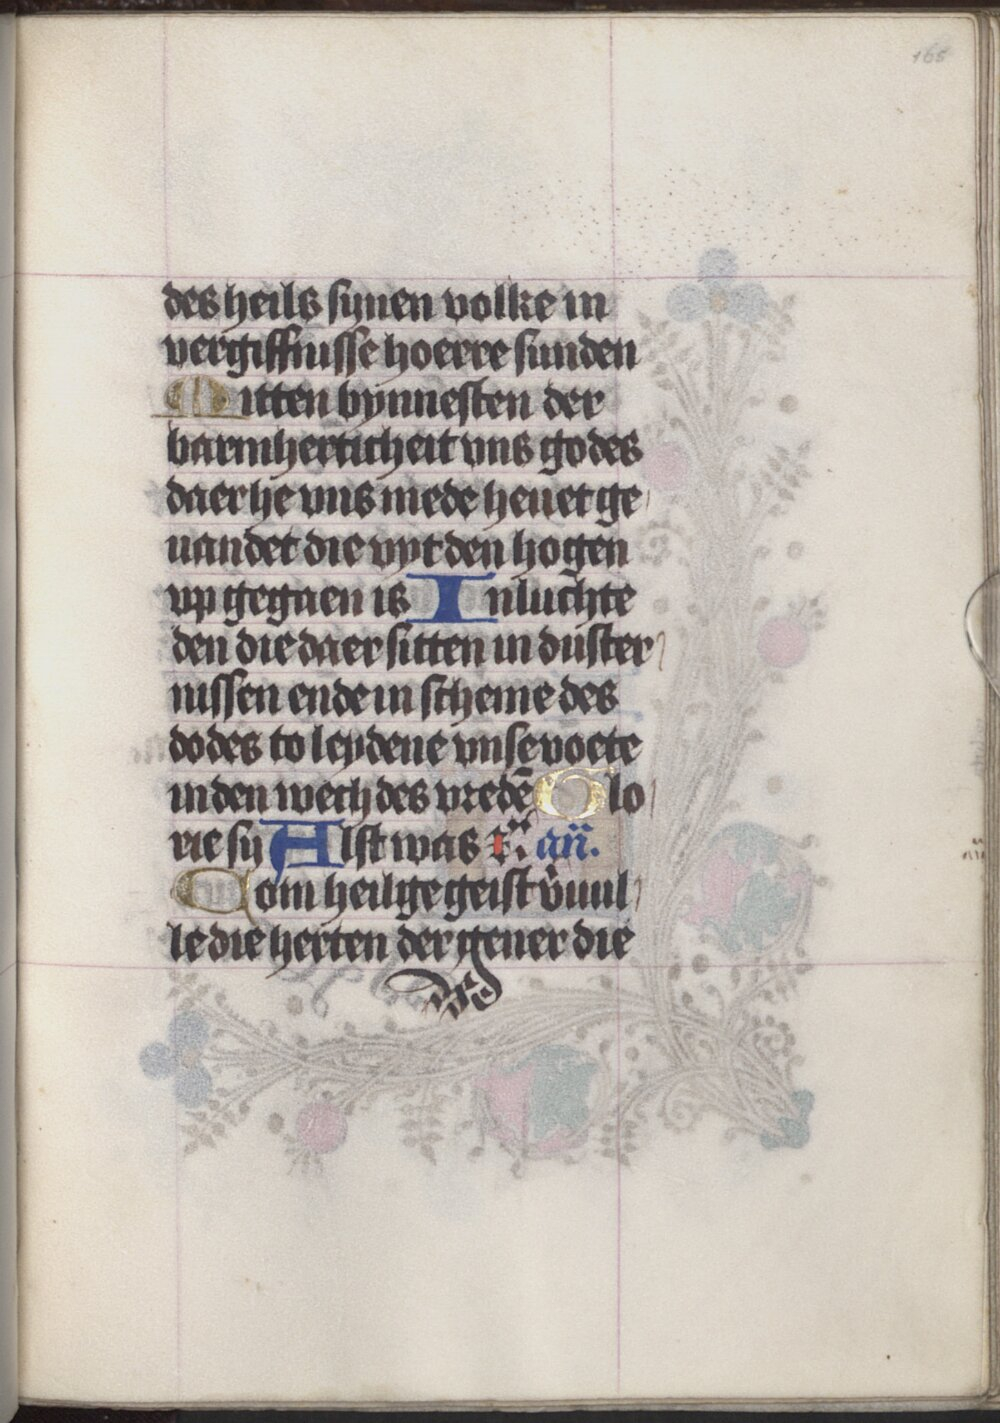 165
des heils synen volke in
vergiffnisse hoerre sunden
Mitten bynnesten der
barmherticheit vns godes
daer he vns mede heuet ge
uandet die vyt den hogen
vp gegaen is Inluchte
den die daer sitten in duster
nissen ende in scheme des
dodes to leydene vnse voete
in den wech des vredē Glo
rie sy Alst was ꝛc̈. an̄.
Com heilge geist v̄uul
le die herten der gener die